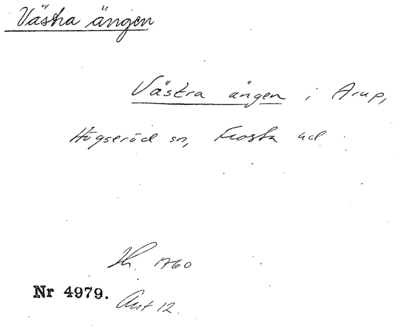 Västra ängen
Västra ängen i Arup,
Högseröd sn, Frosta hd.
Sk. 1760
Nr 4979.
Akt 12.